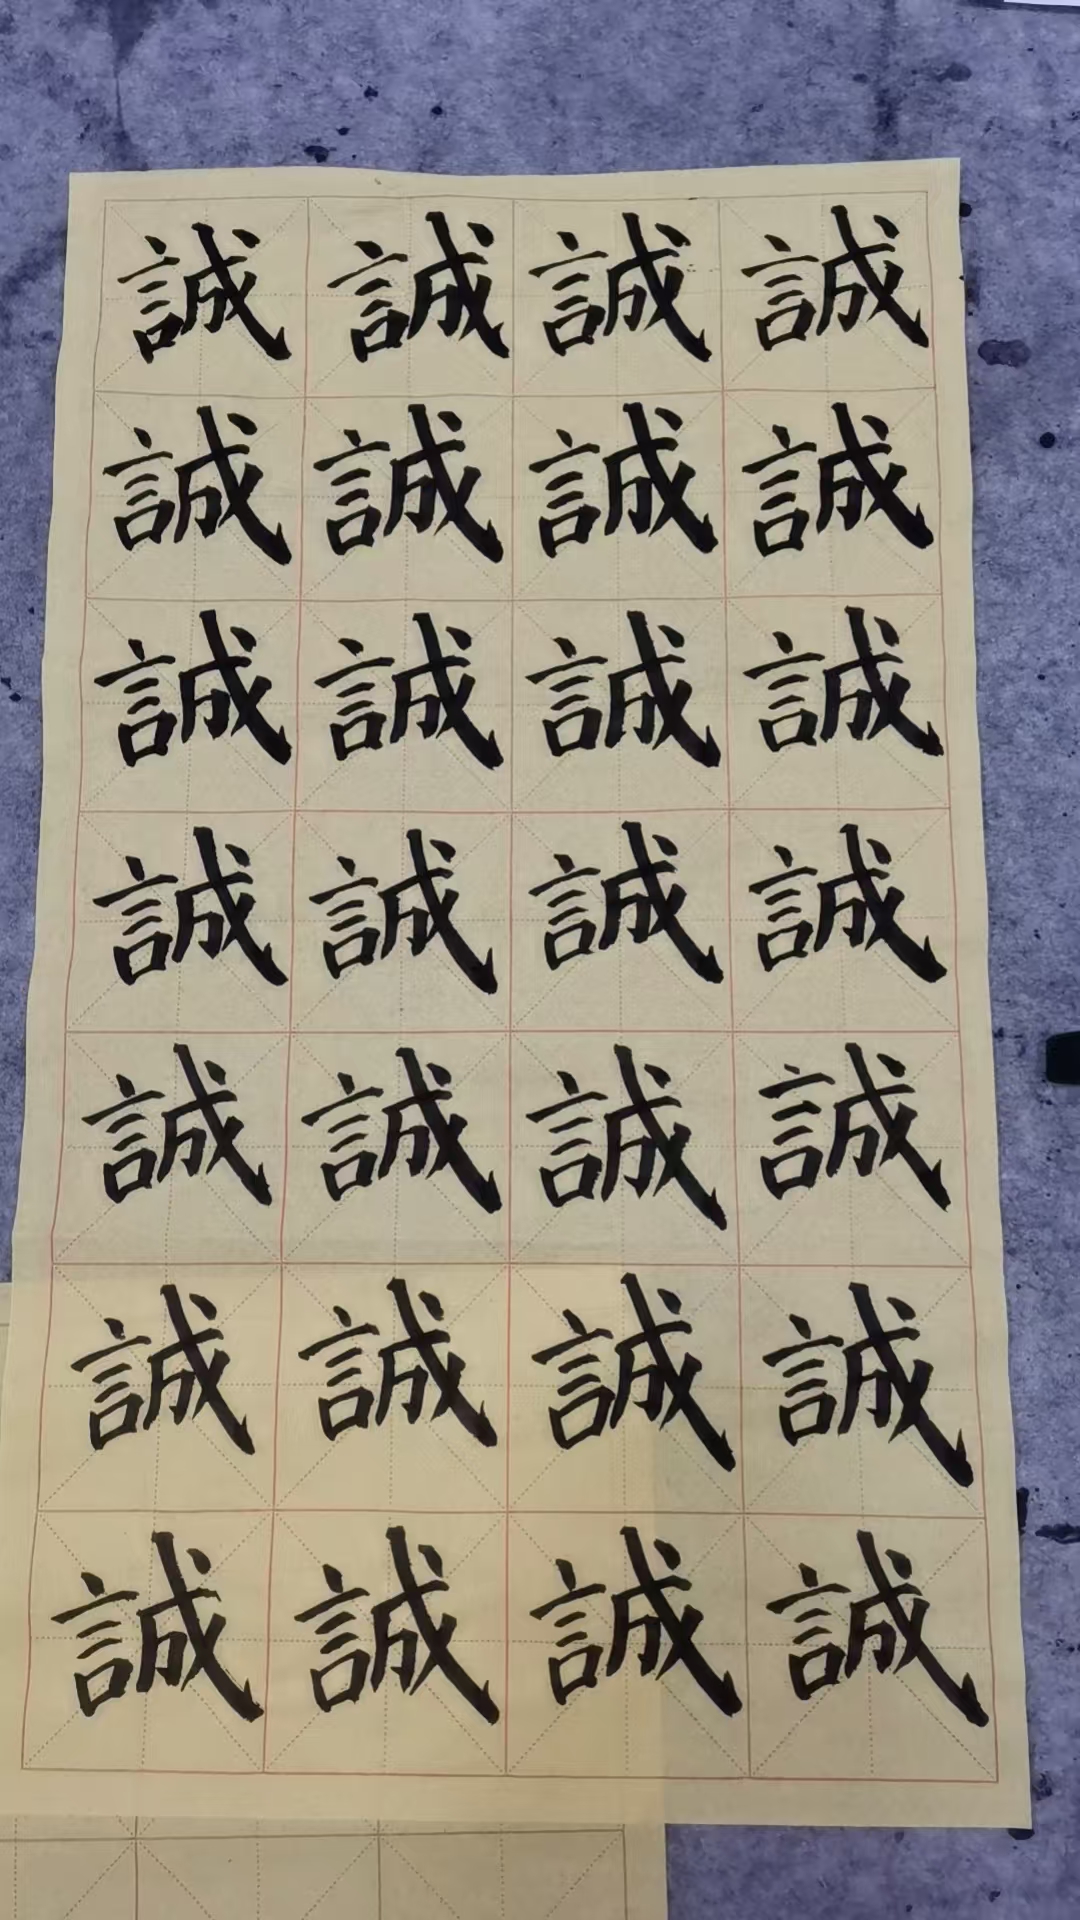 誠誠誠誠
誠誠誠誠
誠誠誠誠
誠誠誠誠
誠誠誠誠
誠誠誠誠
誠誠誠誠